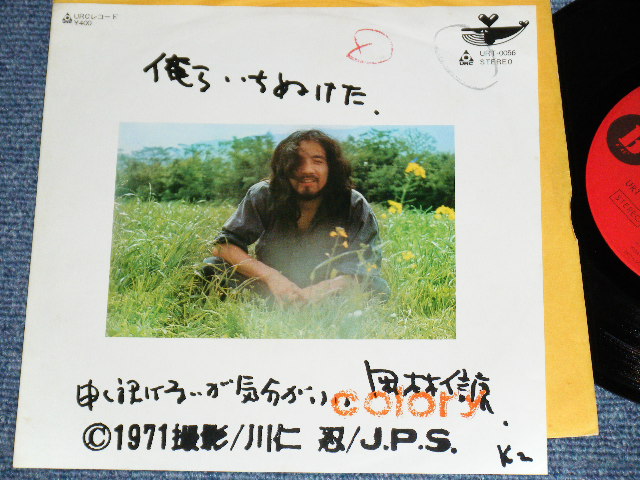 URCレコード
¥400
URT-0056
URC STEREO
俺らいちぬけた.
申し訳けないが気分がいい。岡林信康.
colory
©1971撮影/川仁 忍/J.P.S.